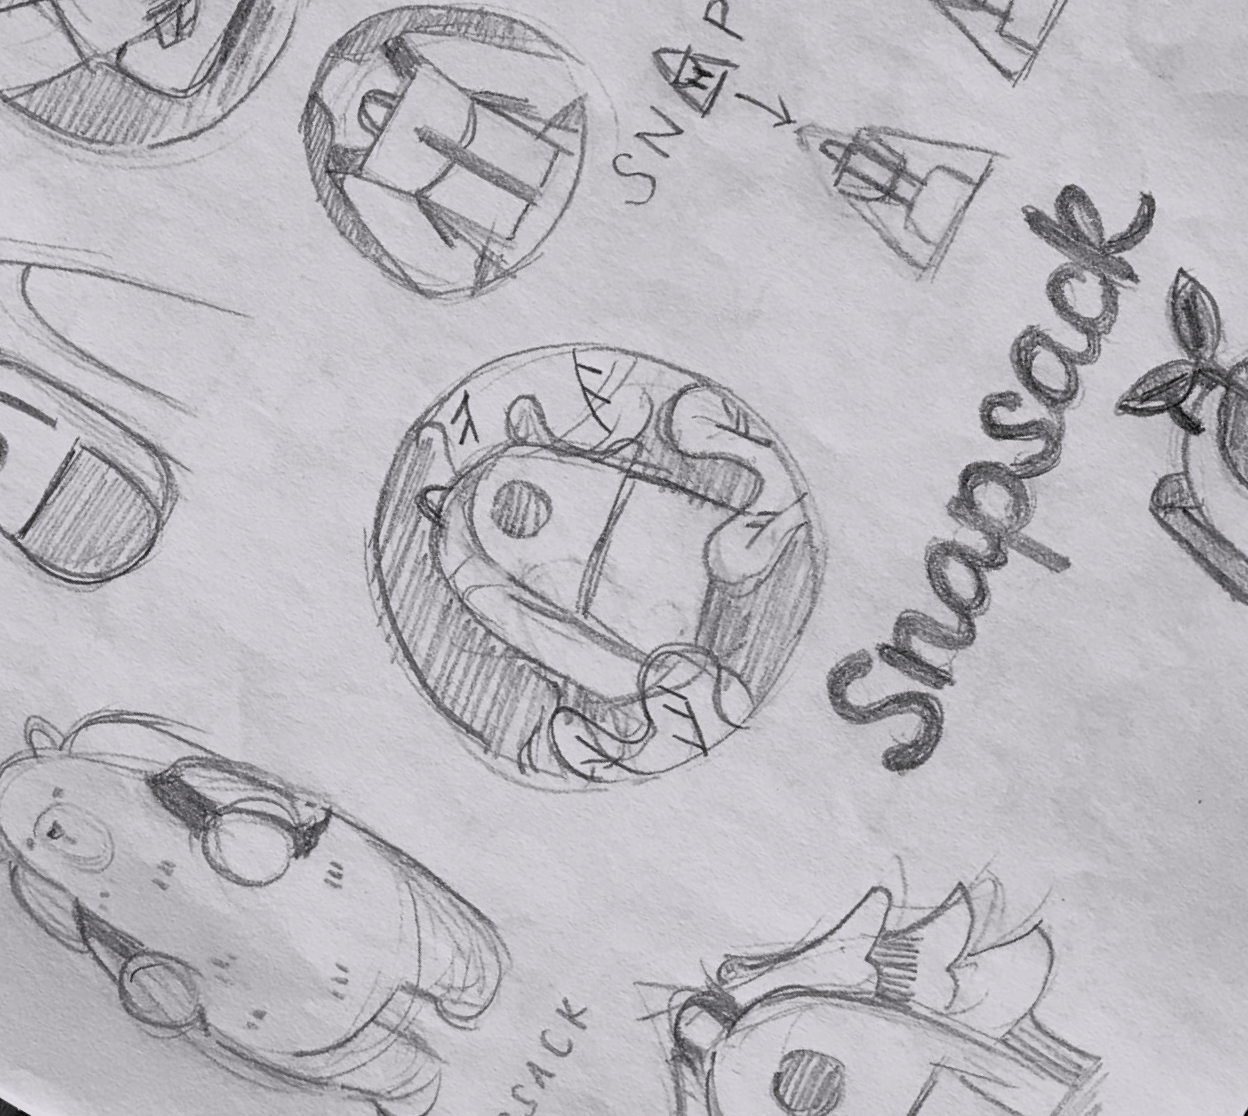 SNAP
Snapsack
SACK